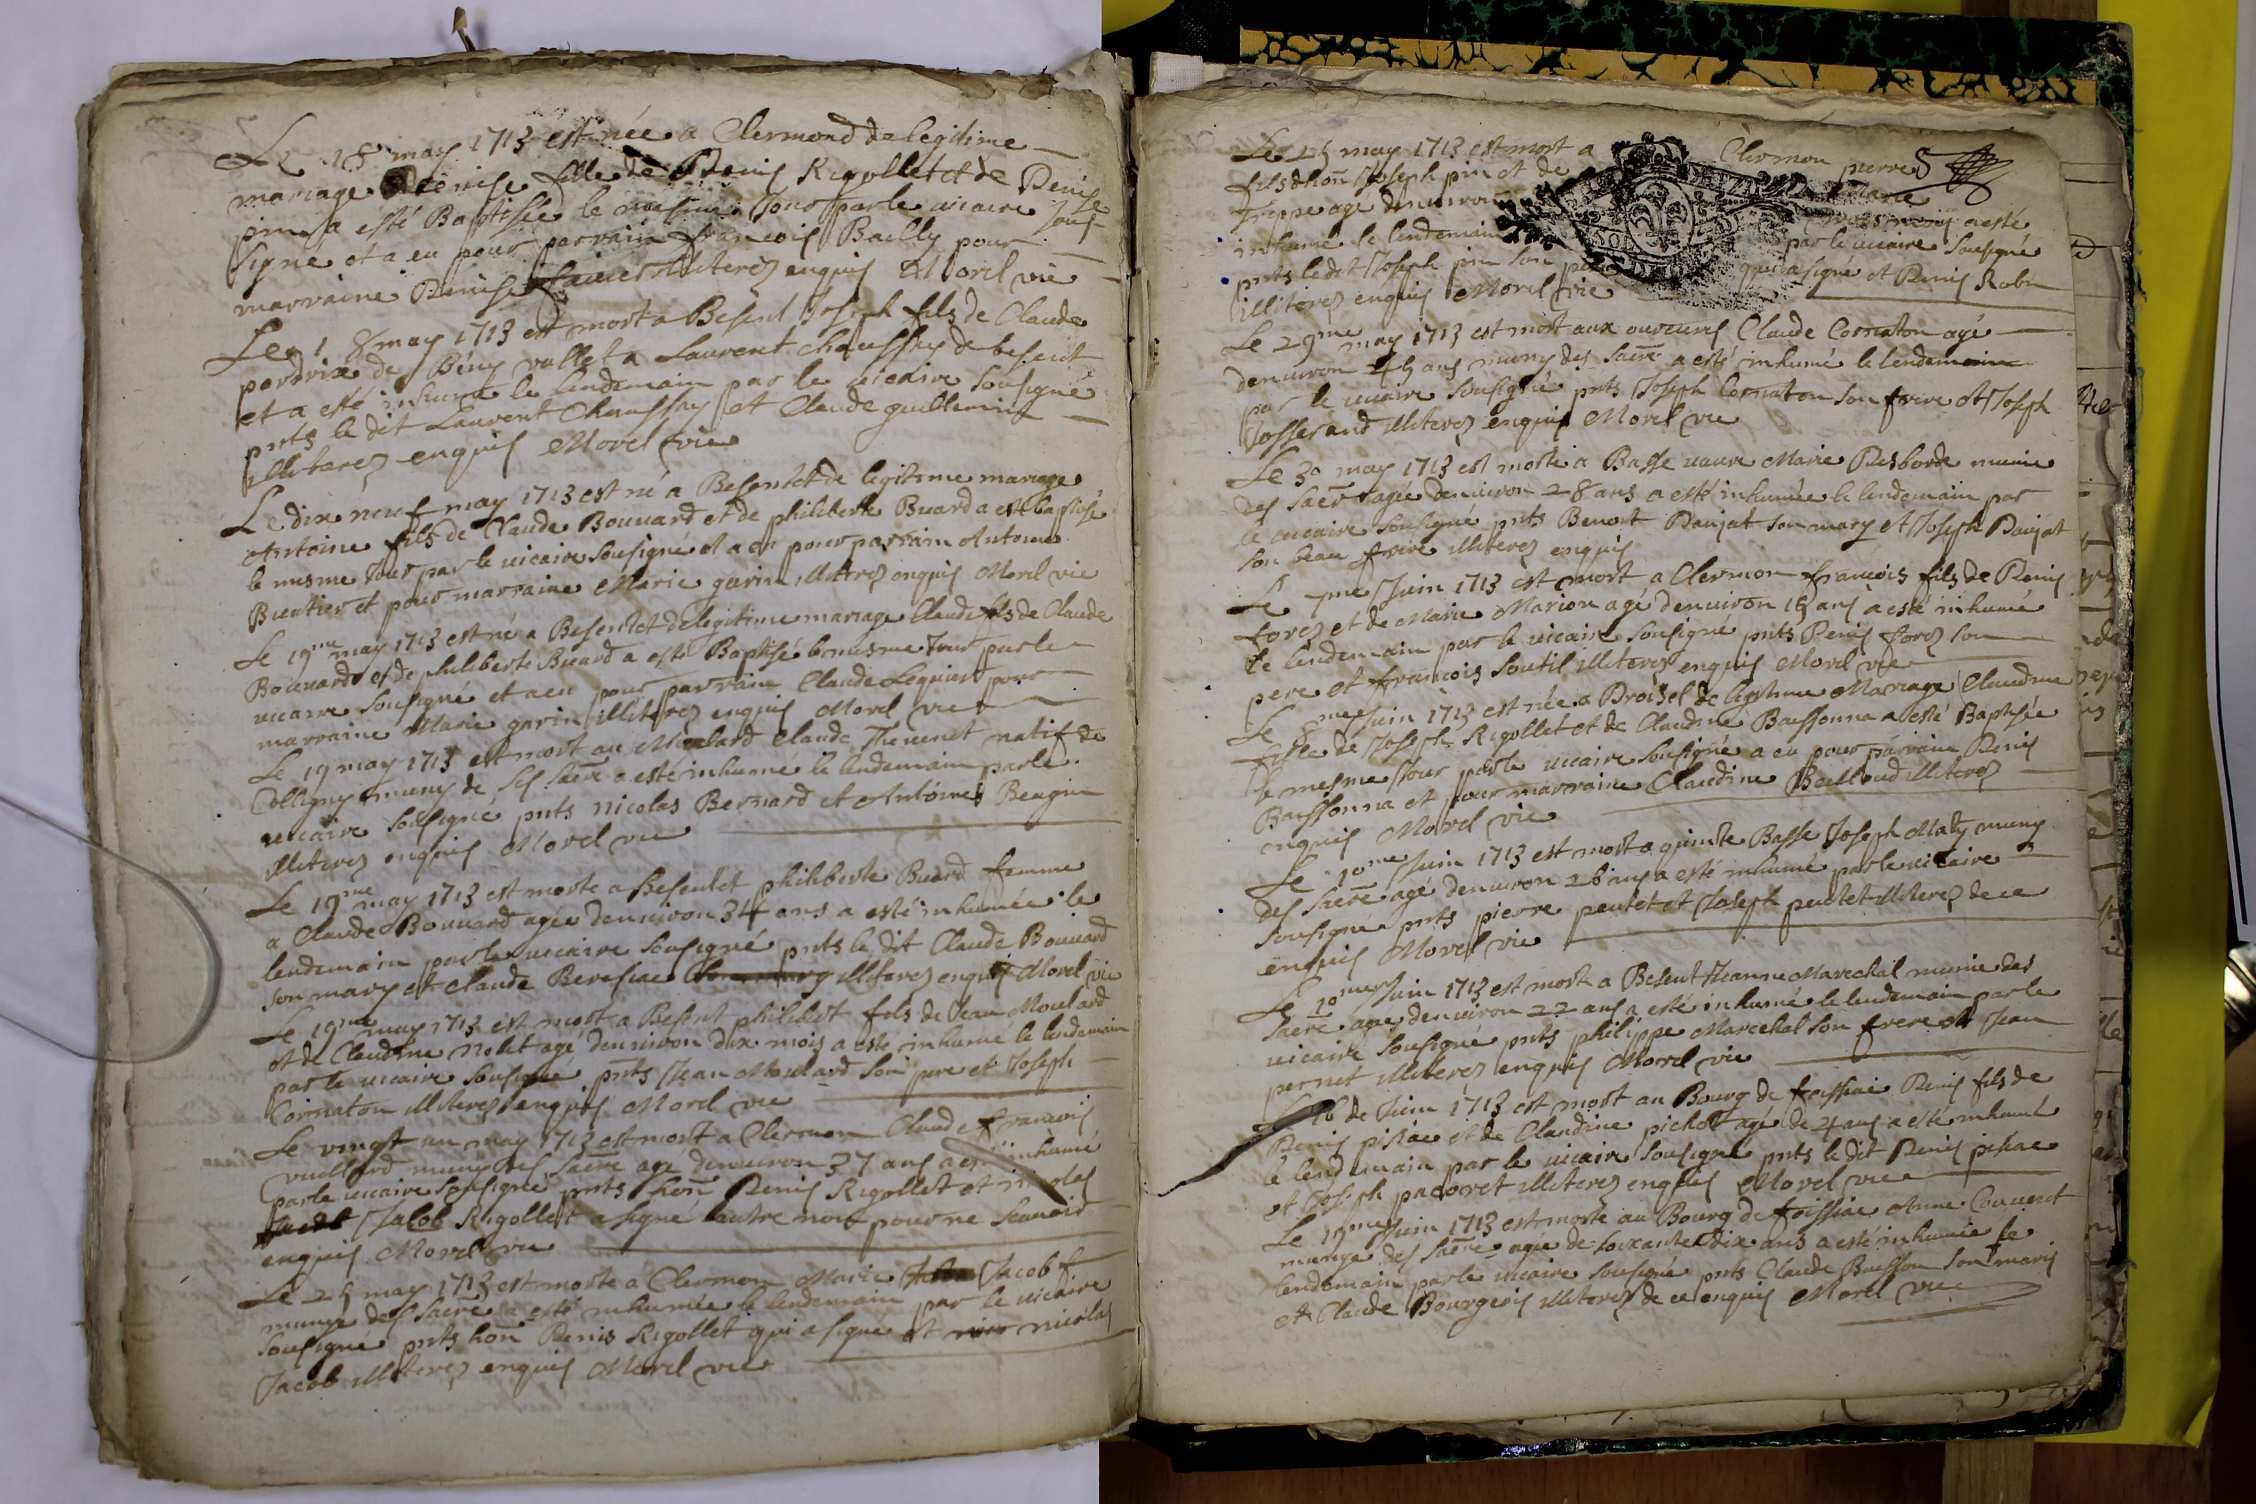 Le 18 may 1713 est née a Clermond de legitime
mariage Denise fille de Denis Rigollet et de Denise
pin a esté Baptisée le mesme Jour par le vicaire sous
signe et a eu pour parrain francois Bailly pour
marraine Denise illiterez enquis Morel vic
Le 18 may 1713 est mort a Besent Joseph fils de Claude
perdrix de Bény vallet a Laurent chaussey de besent
et a esté inhumé le lendemain par le vicaire sousigné
pnts le dit Laurent Chaussey et Claude guillemin
illiterez enquis Morel vic
Le dix neuf may 1713 est né a Besentet de legitime mariage
Antoine fils de Claude Bouuard et de philiberte Buard a esté baptisé
le mesme Jour par le vicaire sousigné et a eu pour parrain Antoine
Buatier et pour marraine Marie garin illiterez enquis Morel vic
Le 19me may 1713 est né a Besentet de legitime mariage Claude fils de Claude
Bouuard et de philiberte Buard a esté Baptisé le mesme Jour par le
vicaire sousigné et a eu pour parrain Claude Lequiart pour
marraine Marie garin illiterez enquis Morel vic
Le 19 may 1713 est mort au Moulard Claude Theuenet natif de
Colligny muny de ses sacre a esté inhumé le lendemain par le
vicaire sousigné pnts nicolas Bernard et Antoine Beugin
illiterez enquis Morel vic
Le 19me may 1713 est morte a Besentet philiberte Buard femme
a Claude Bouuard agée denuiron 34 ans a esté inhumée le
lendemain par le vicaire sousigné pnts le dit Claude Bouuard
son mary et claude Beresiae illiterez enquis Morel vic
Le 19me may 1713 est mort a Besent philibert fils de Jean Moulard
et de Claudine nolet agé denuiron dix mois a esté inhumé le lendemain
par le vicaire sousigné pnts Jean Moulard son pere et Joseph
Cornaton illiterez enquis Morel vic
Le vingt un may 1713 est mort a Clermon Claude francois
vuillard muny des sacre agé denuiron 37 ans a esté inhumé
par le vicaire sousigné pnts hon Denis Rigollet et nicolas
Jacob Rigollet a signé lautre non pour ne scauoir
enquis Morel vic
Le 25 may 1713 est morte a Clermon Marie Jacob
munye des sacre a esté inhumée le lendemain par le vicaire
sousigné pnts hon Denis Rigollet qui a signé et nicolas
Jacob illiterez enquis Morel vic
Le 25 may 1713 est mort a Clermon pierre
fils de hon Joseph pin et de Marie
Frippe agé denuiron trois mois a esté
inhumé le lendemain par le vicaire sousigné
pnts le dit Joseph pin son pere qui a signé et Denis Robin
illiterez enquis Morel vic
Le 29me may 1713 est mort aux ouueures Claude Cornaton agé
denuiron 45 ans muny des sacre a esté inhumé le lendemain
par le vicaire sousigné pnts Joseph Cornaton son frere et Joseph
Josserand illiterez enquis Morel vic
Le 30 may 1713 est morte a Basse vaure Marie Desborde munie
des sacre agée denuiron 28 ans a esté inhumée le lendemain par
le vicaire sousigné pnts Benoit Daujat son mary et Joseph Daujat
son beau frere illiterez enquis
Le 7me Juin 1713 est mort a Clermon francois fils de Denis
forez et de Marie Marion agé denuiron 15 ans a esté inhumé
le lendemain par le vicaire sousigné pnts Denis forez son
pere et francois soutil illiterez enquis Morel vic
Le 8me Juin 1713 est née a Broisel de legitime Mariage Claudine
fille de Joseph Rigollet et de Claudine Baissonna a esté Baptisée
le mesme Jour par le vicaire sousigné a eu pour parrain Denis
Baissonna et pour marraine Claudine Bailloud illiterez
enquis Morel vic
Le 10me Juin 1713 est mort a quinte Basse Joseph Maty muny
des sacre agé denuiron 26 ans a esté inhumé par le vicaire
sousigné pnts pierre peutet et Joseph peutet illiterez de ce
enquis Morel vic
Le 10me Juin 1713 est morte a Besent Jeanne Marechal munie des
sacre agée denuiron 22 ans a esté inhumé le lendemain par le
vicaire sousigné pnts philippe Marechal son frere et Jean
pernet illiterez enquis Morel vic
Le 16 de Juin 1713 est mort au Bourg de foissiae Denis fils de
Denis pisiae et de Claudine pichot agé de 4 ans a esté inhumé
le lendemain par le vicaire sousigné pnts le dit Denis pisiae
et Joseph pacoret illiterez enquis Morel vic
Le 19me Juin 1713 est morte au Bourg de foissiae Anne Conuert
munye des sacre agée de soixante dix ans a esté inhumée le
lendemain par le vicaire sousigné pnts Claude Buisson son maris
et Claude Bourgeois illiterez de ce enquis Morel vic